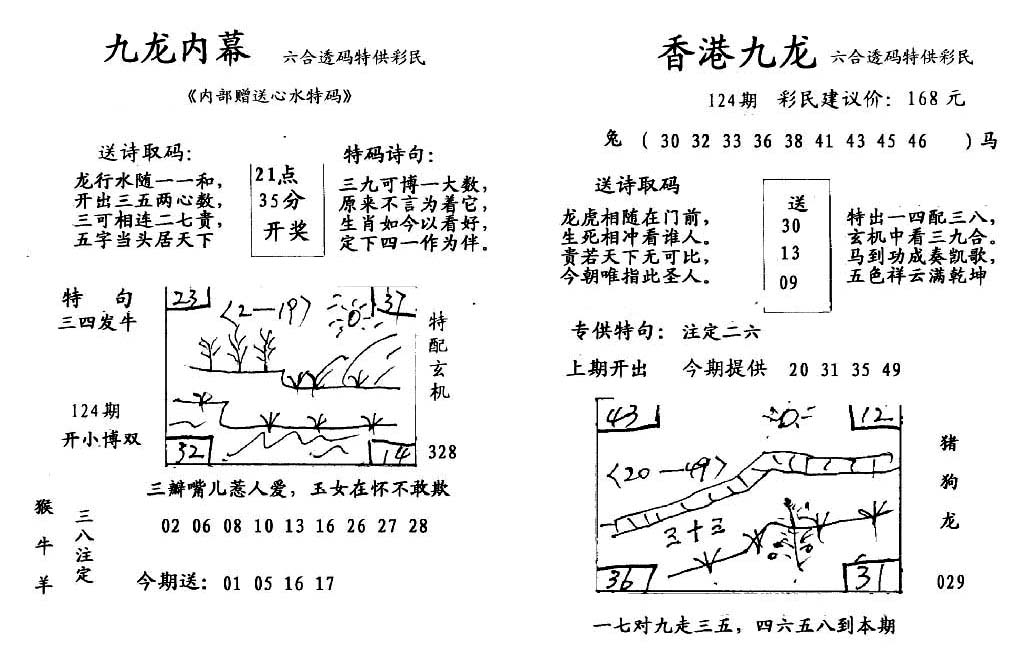 九龙内幕 六合透码特供彩民
《内部赠送心水特码》
送诗取码：
龙行水随一一和，
开出三五两心数，
三可相连二七贵，
五字当头居天下
21点
35分
开奖
特码诗句：
三九可博一大数，
原来不言为着它，
生肖如今以看好，
定下四一作为伴。
特 句
三四发牛
124期
开小博双
23
37
〈2—19〉
32
14
特配玄机
328
三瓣嘴儿惹人爱，玉女在怀不敢欺
猴牛羊
三八注定
02 06 08 10 13 16 26 27 28
今期送：01 05 16 17
香港九龙 六合透码特供彩民
124期 彩民建议价：168元
兔 （30 32 33 36 38 41 43 45 46 ）马
送诗取码
龙虎相随在门前，
生死相冲看谁人。
贵若天下无可比，
今朝唯指此圣人。
送
30
13
09
特出一四配三八，
玄机中看三九合。
马到功成奏凯歌，
五色祥云满乾坤
专供特句：注定二六
上期开出 今期提供 20 31 35 49
43
12
〈20—49〉
三十三
36
31
猪狗龙
029
一七对九走三五，四六五八到本期